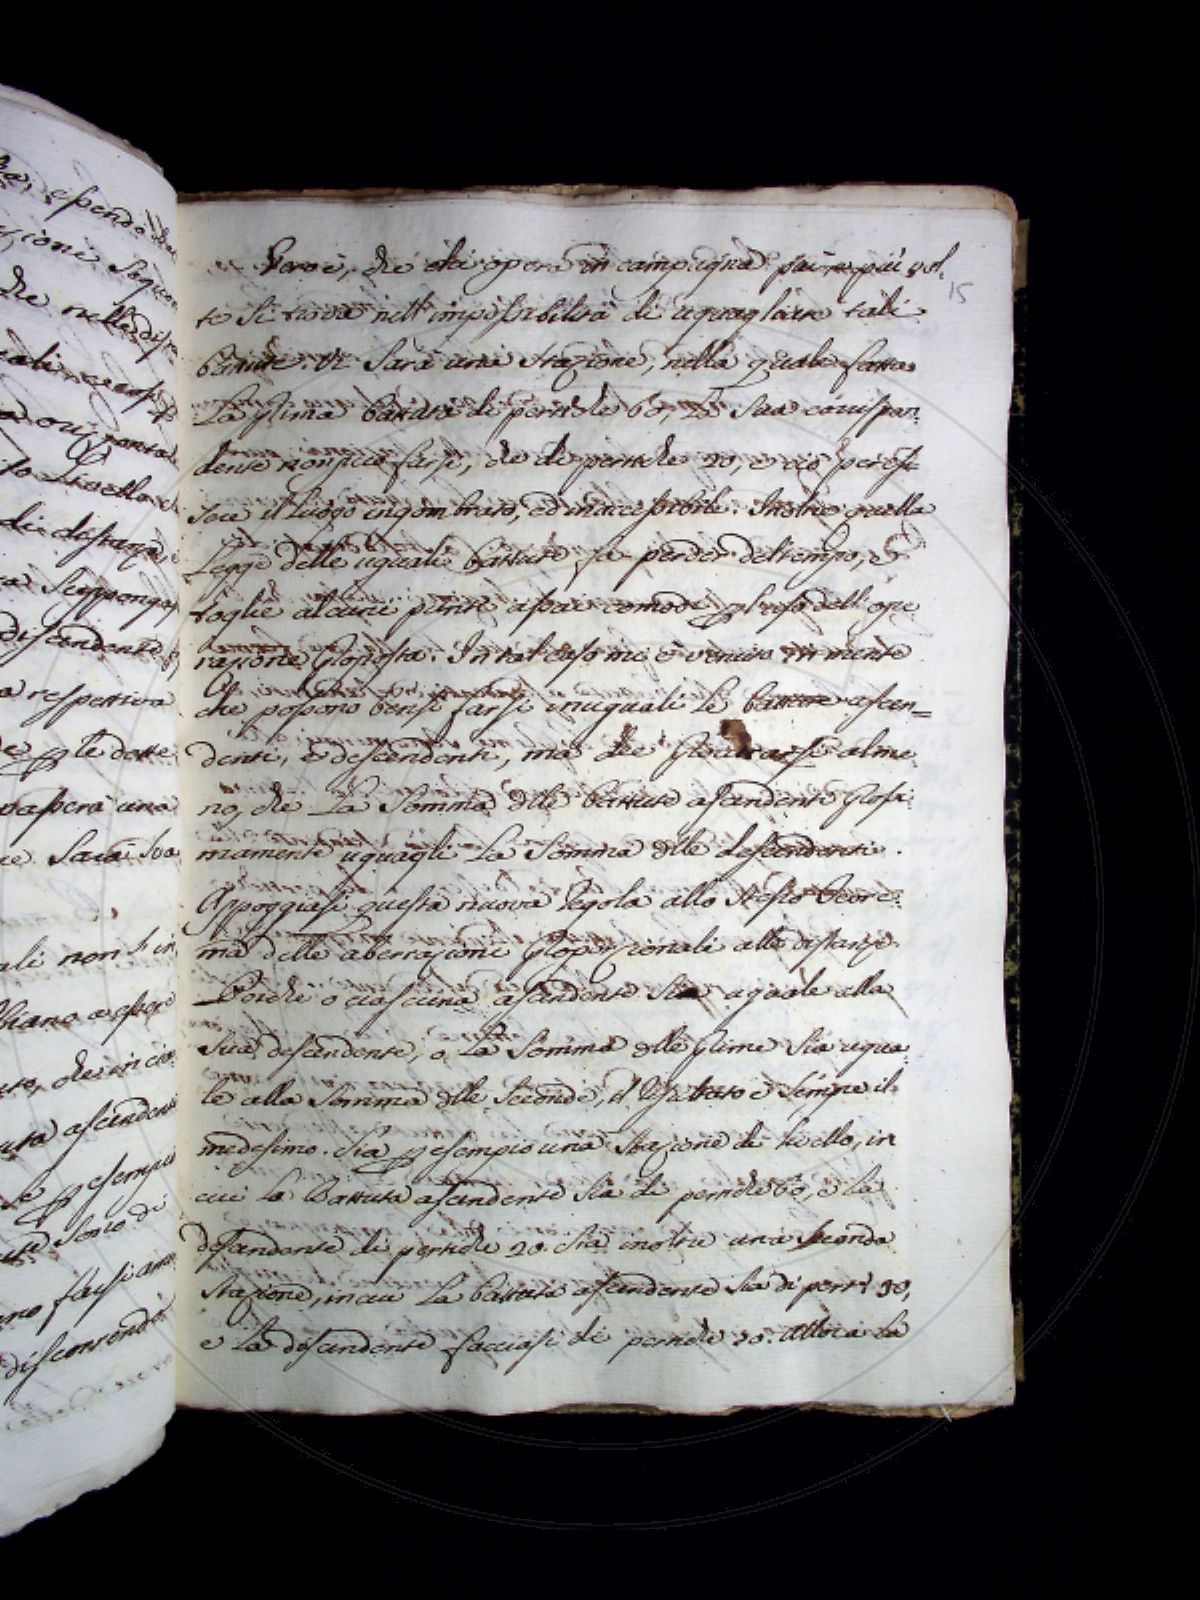 15
Vero è, che chi opera in campagna più e più vol-
te si trova nell'impossibilità di uguagliare tali
battute. Vi sarà una stazione, nella quale fatta
La prima battuta di pertiche 60, La sua corrispon-
dente non può farsi, che di pertiche 20, e ciò per esse-
re il Luogo ingombrato, ed inaccessibile. Inoltre quella
Legge delle uguali battute fa perder del tempo, e
toglie alcuni punti assai comodi pl resto dell'ope
razione proposta. In tal caso mi è venuto in mente
che possono bensì farsi inuguali Le battute ascen=
denti, e descendenti, ma che procurarsi alme-
no, che La Somma dlle battute ascendenti prossi-
mamente uguagli La Somma dlle descendenti.
Appoggiasi questa nuova regola allo stesso Teore-
ma delle aberrazioni proporzionali alle distanze.
Poiche o ciascuna ascendente sia uguale alla
sua descendente, o La Somma dlle prime sia ugua-
le alla Somma dlle seconde, il resultato è sempre il
medesimo. Sia p esempio una stazione di livello, in
cui La Battuta ascendente sia di pertiche 60, e la
descendente di pertiche 20. sia inoltre una seconda
stazione, in cui La battuta ascendente sia di pert. 30,
e La descendente facciasi di pertiche 70. allora La
di distanza,
descendente
a respettiva
passerà una
ali non
ascendente
p esempio
sono di